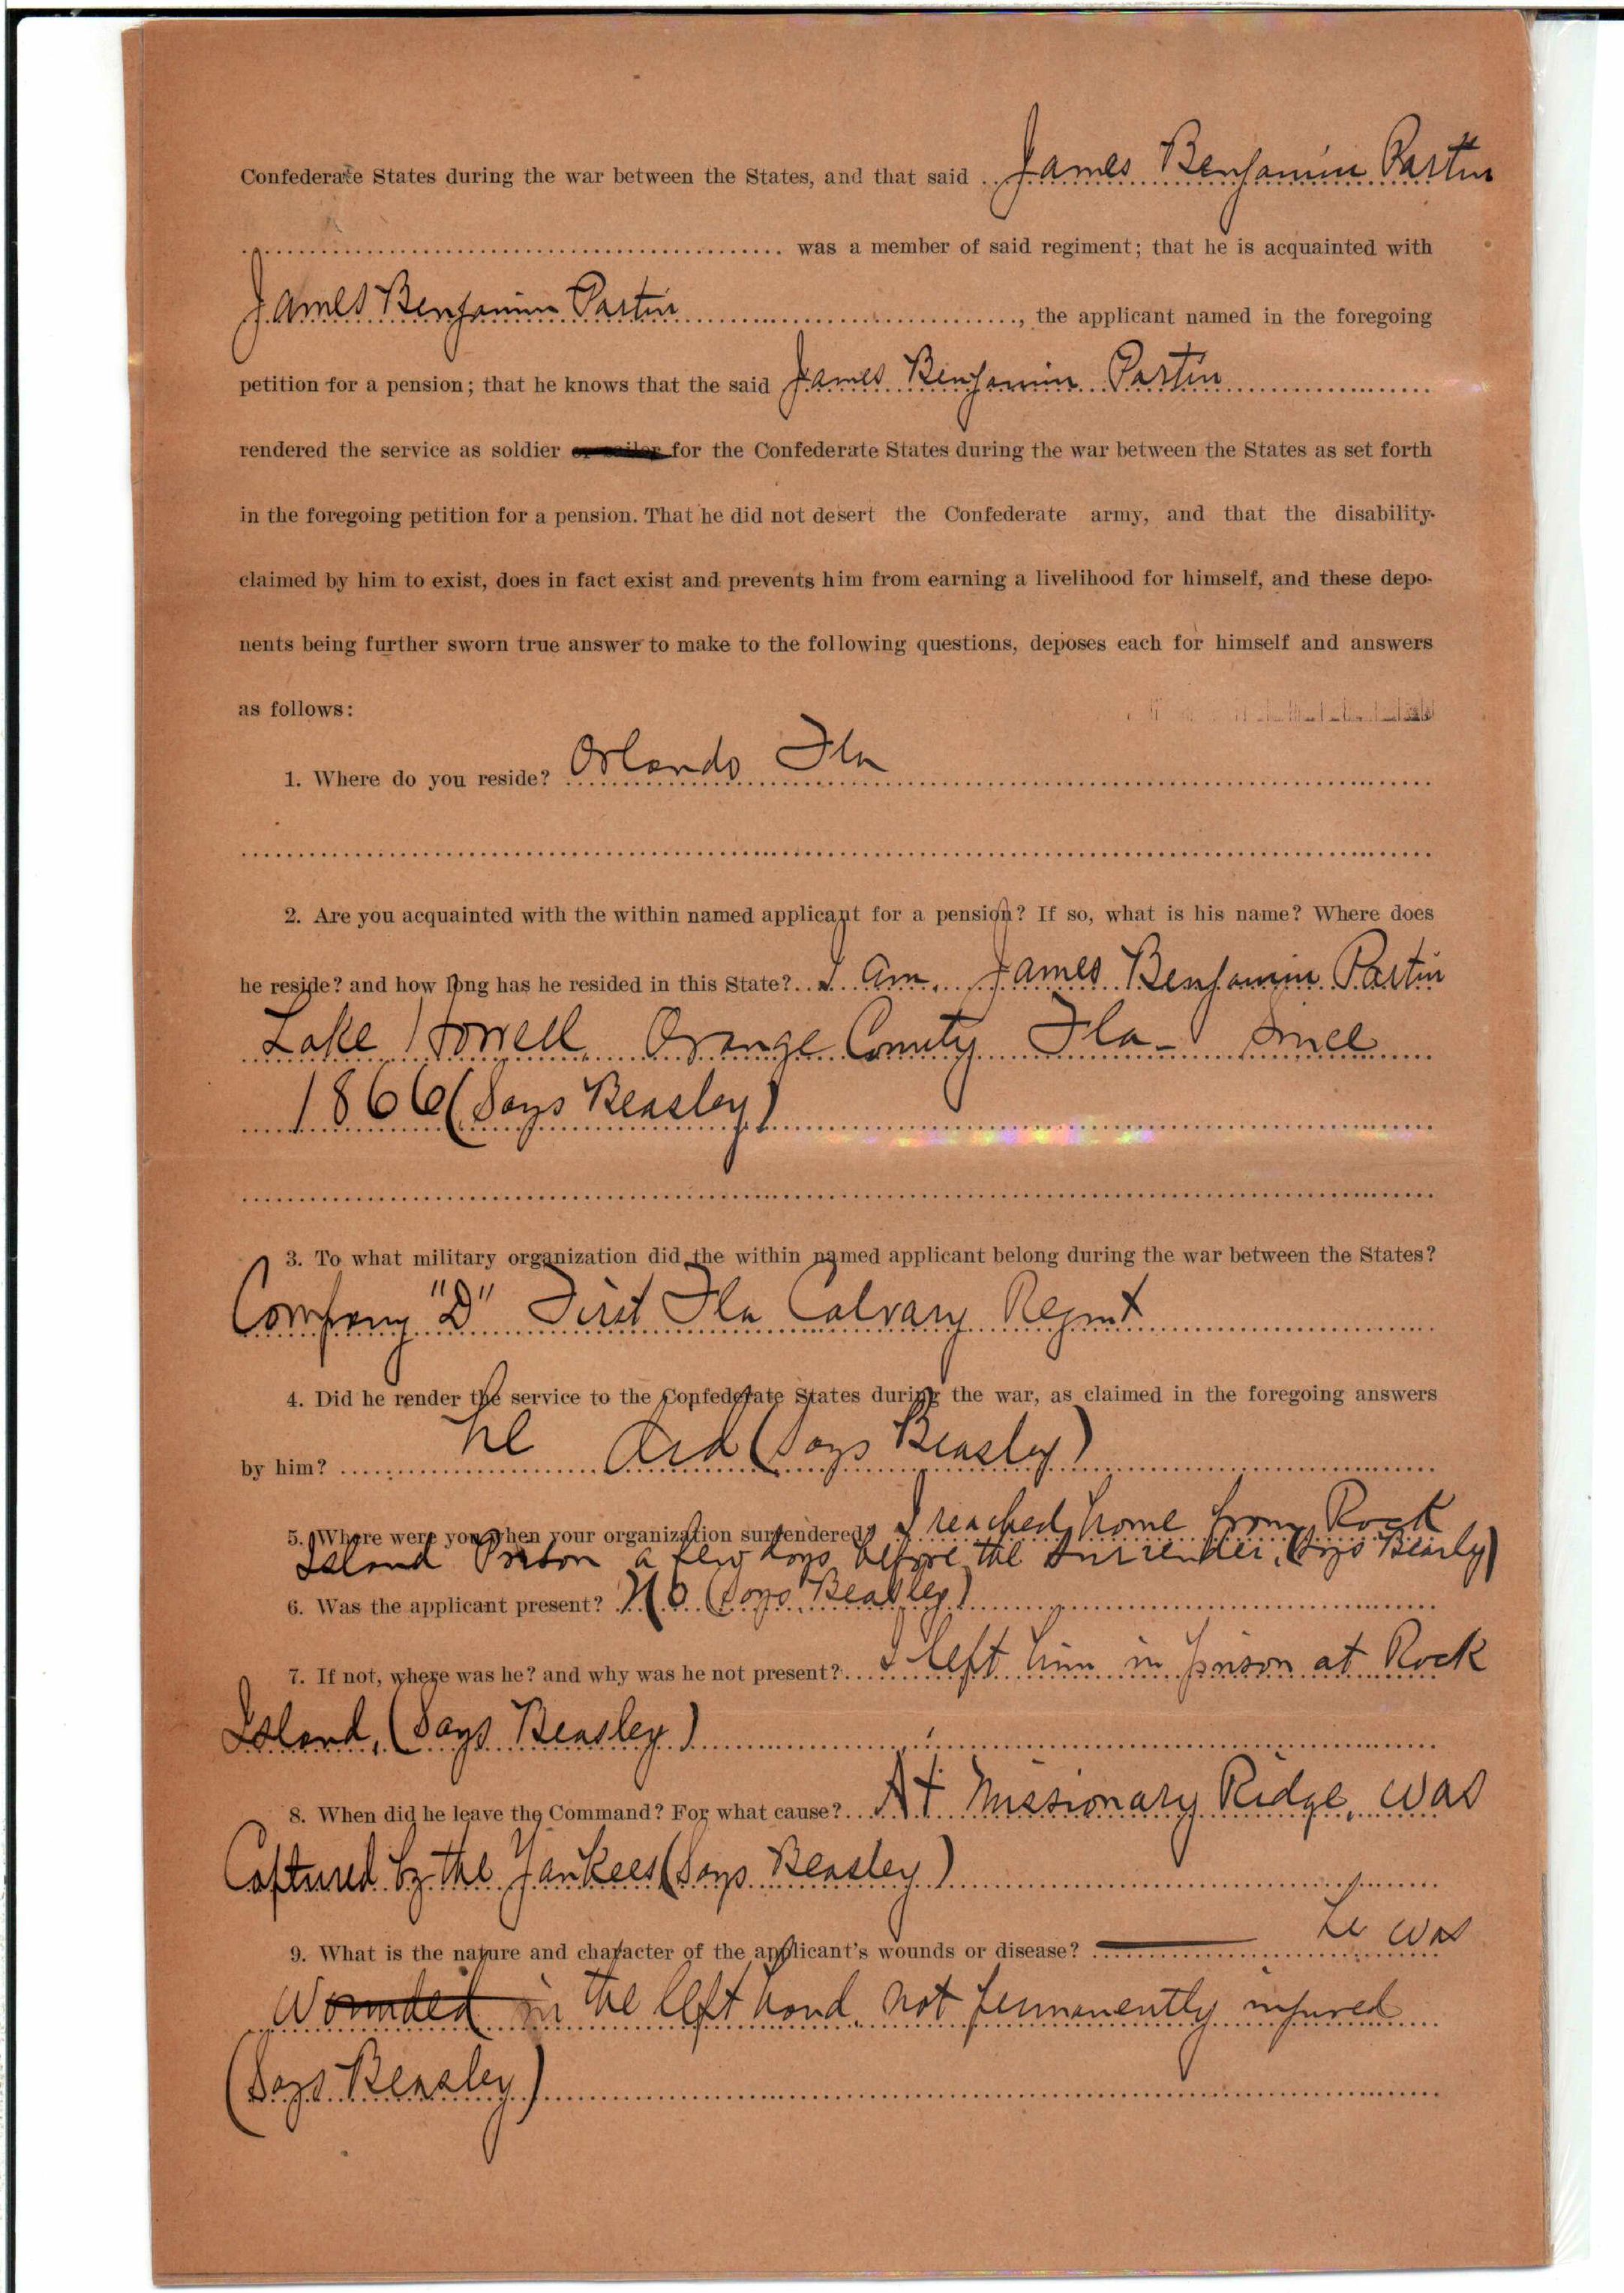 Confederate States during the war between the States, and that said James Benjamin Partin
was a member of said regiment; that he is acquainted with
James Benjamin Partin, the applicant named in the foregoing
petition for a pension; that he knows that the said James Benjamin Partin
rendered the service as soldier or sailor for the Confederate States during the war between the States as set forth
in the foregoing petition for a pension. That he did not desert the Confederate army, and that the disability
claimed by him to exist, does in fact exist and prevents him from earning a livelihood for himself, and these depo-
nents being further sworn true answer to make to the following questions, deposes each for himself and answers
as follows:
1. Where do you reside? Orlando Fla
2. Are you acquainted with the within named applicant for a pension? If so, what is his name? Where does
he reside? and how long has he resided in this State? I am. James Benjamin Partin
Lake Howell, Orange County Fla - Since
1866 (Says Beasley)
3. To what military organization did the within named applicant belong during the war between the States?
Company "D" First Fla Calvary Regmt
4. Did he render the service to the Confederate States during the war, as claimed in the foregoing answers
by him? he did (Says Beasley)
5. Where were you when your organization surrendered? I reached home from Rock
Island Prison a few days before the surrender. (Says Beasly)
6. Was the applicant present? No (Says Beasley)
7. If not, where was he? and why was he not present? I left him in prison at Rock
Island, (Says Beasley)
8. When did he leave the Command? For what cause? At Missionary Ridge, was
Captured by the Yankees (Says Beasley)
9. What is the nature and character of the applicant's wounds or disease? he was
Wounded in the left hand, not permanently injured
(Says Beasley)